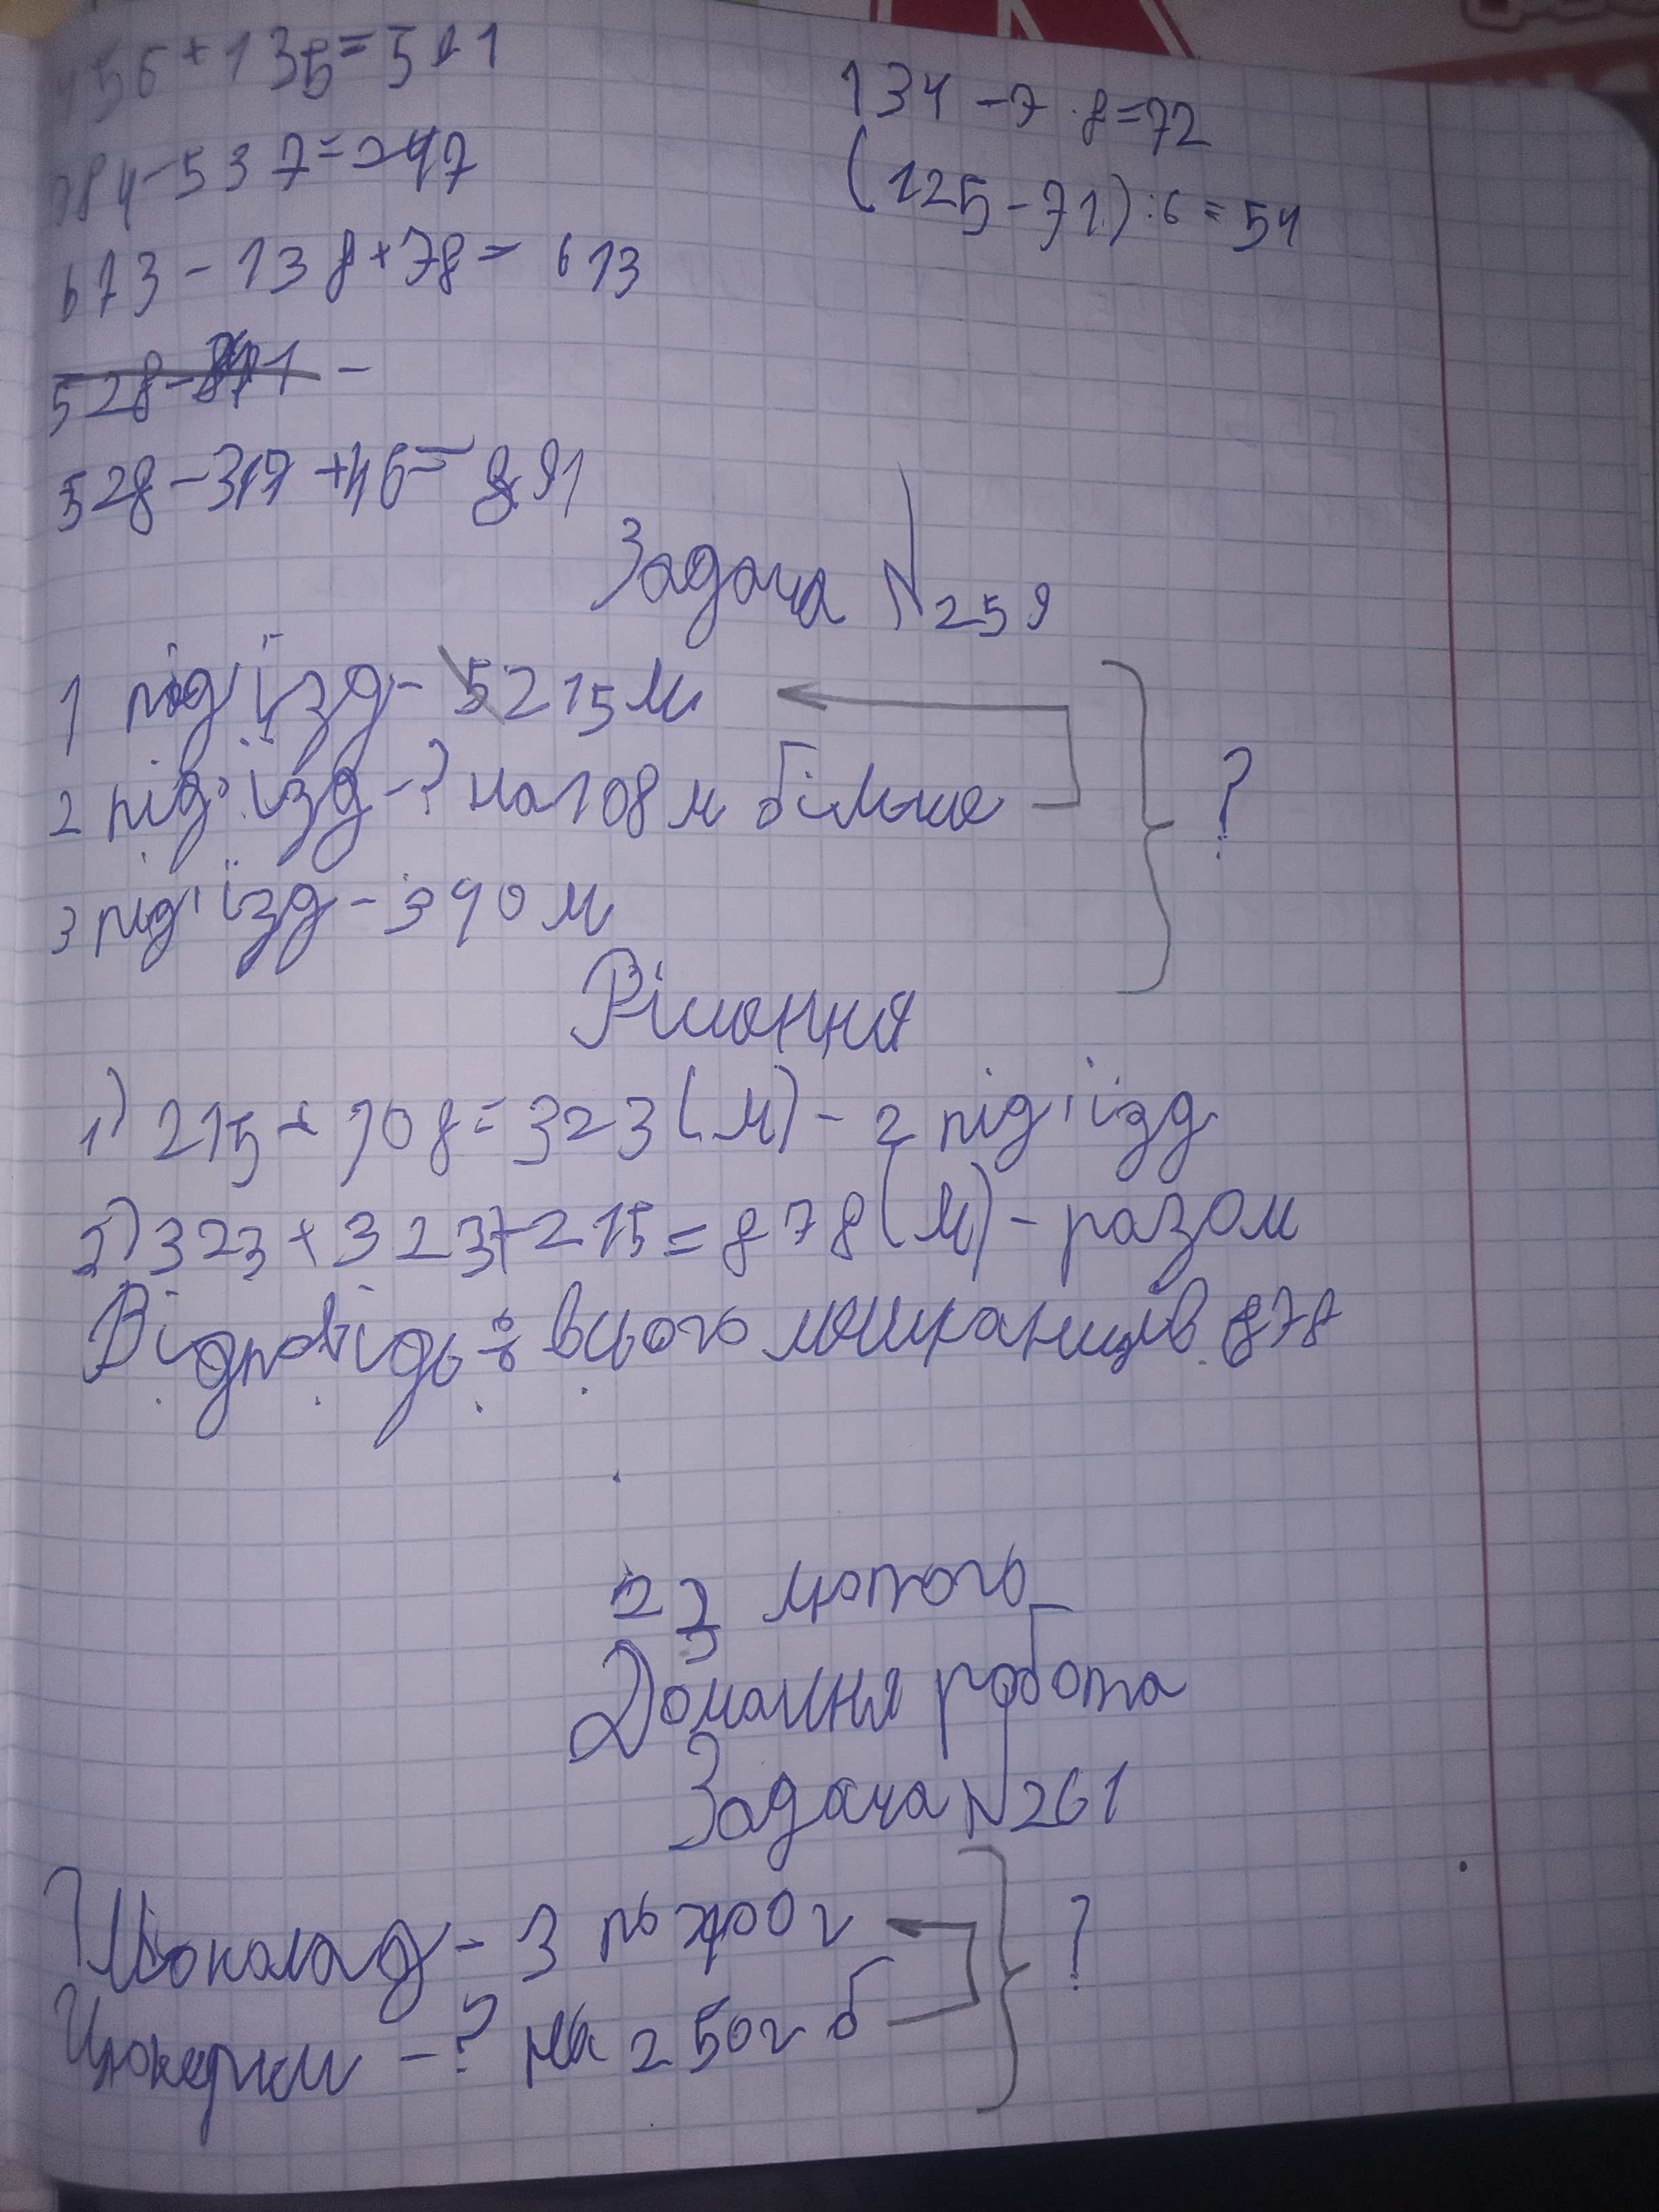 456+135=591
784-537=247
134-7·8=72
(125-71):6=54
673-138+78=613
528-317+46=891
Задача N259
1 під'їзд-5215м
2 під'їзд-? на 108 м більше
3 під'їзд-340м
Рішення
1) 215+108=323(м)-2 під'їзд
2) 323+323+215=878(м)-разом
Відповідь: всього мешканців 878
23 лютого
Домашня робота
Задача N261
Шоколад - 3 по 100г
Цукерки -? на 250г б
?
?